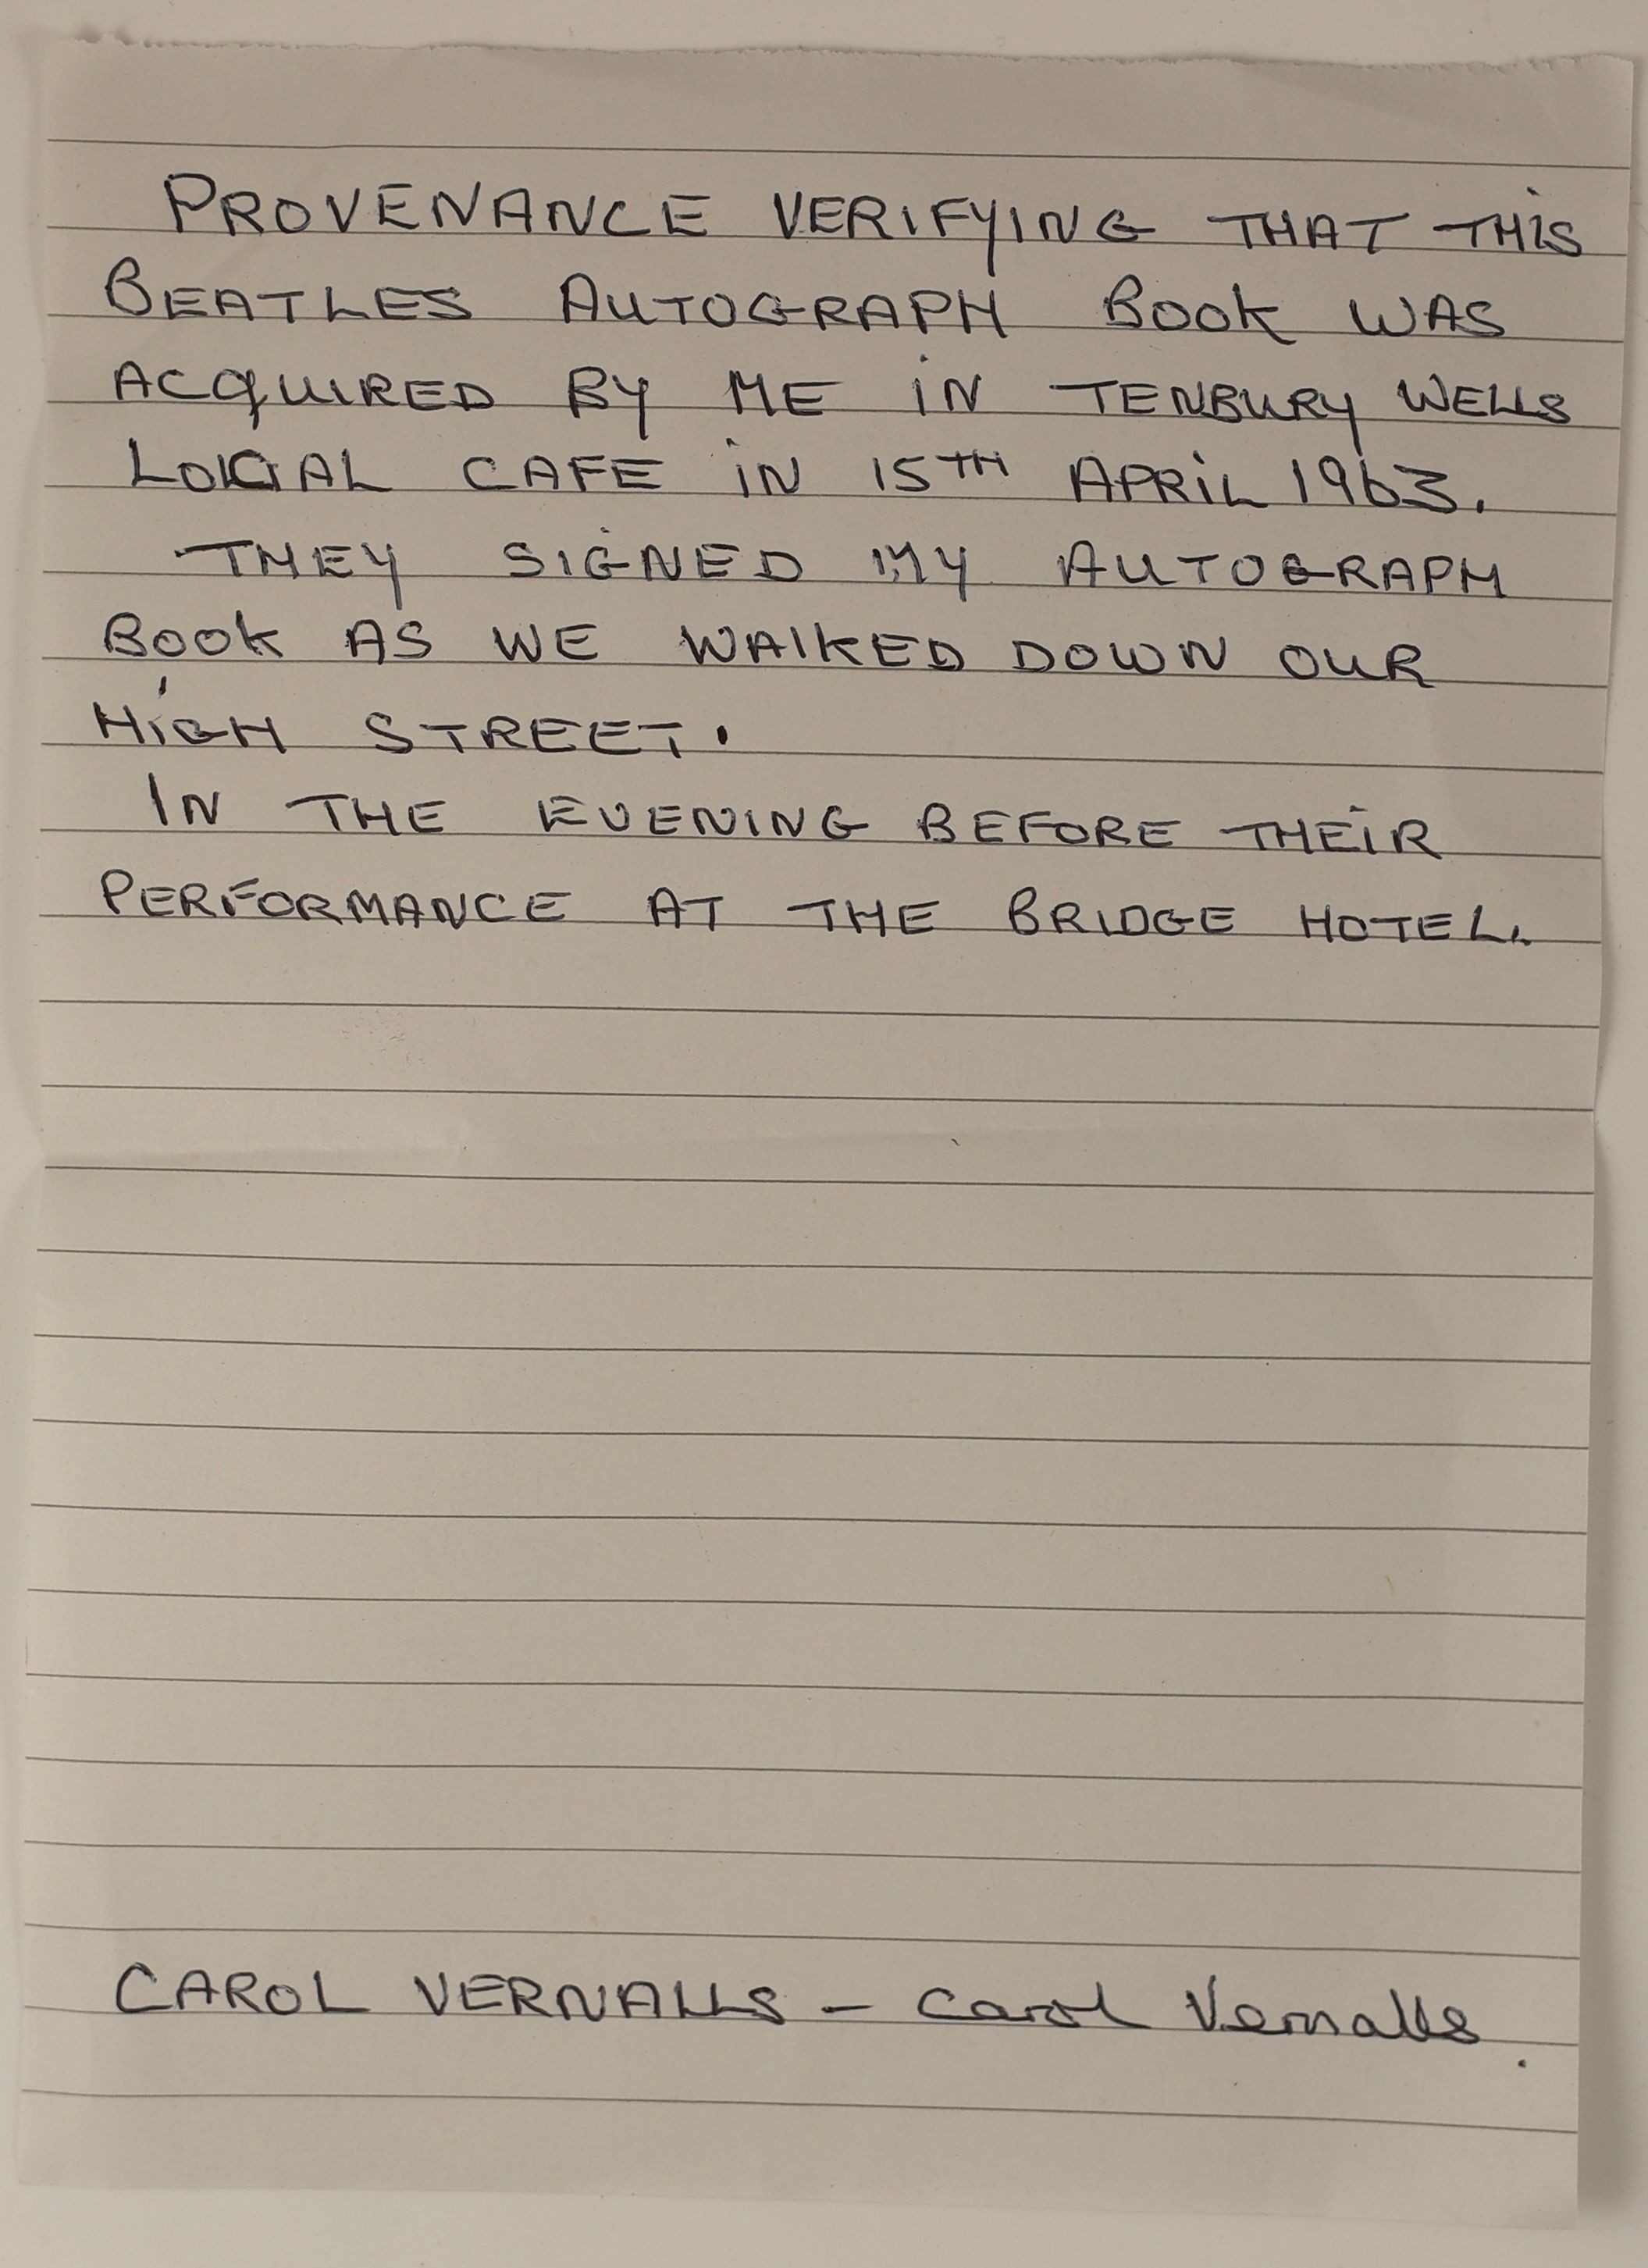 PROVENANCE VERIFYING THAT THIS
BEATLES AUTOGRAPH BOOK WAS
ACQUIRED BY ME IN TENBURY WELLS
LOCAL CAFE IN 15TH APRIL 1963.
THEY SIGNED MY AUTOGRAPH
BOOK AS WE WALKED DOWN OUR
HIGH STREET.
IN THE EVENING BEFORE THEIR
PERFORMANCE AT THE BRIDGE HOTEL.
CAROL VERNALLS - Carol Vernalls.